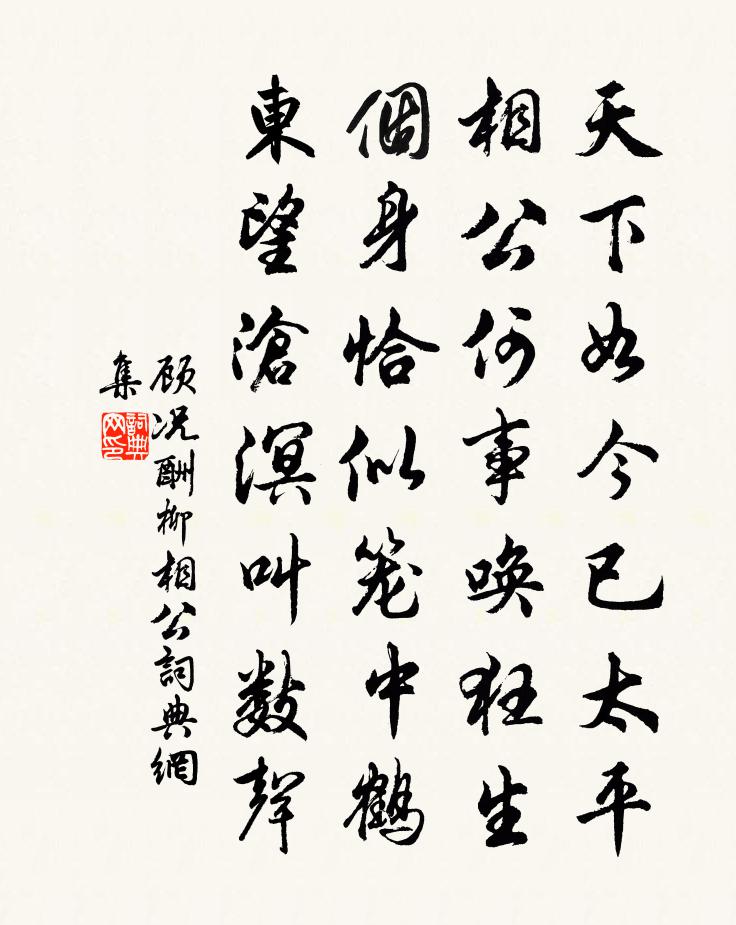 天下如今已太平
相公何事喚狂生
個身恰似笼中鶴
東望滄溟叫數聲
顾况酬柳相公詞典網
集
詞典
网印